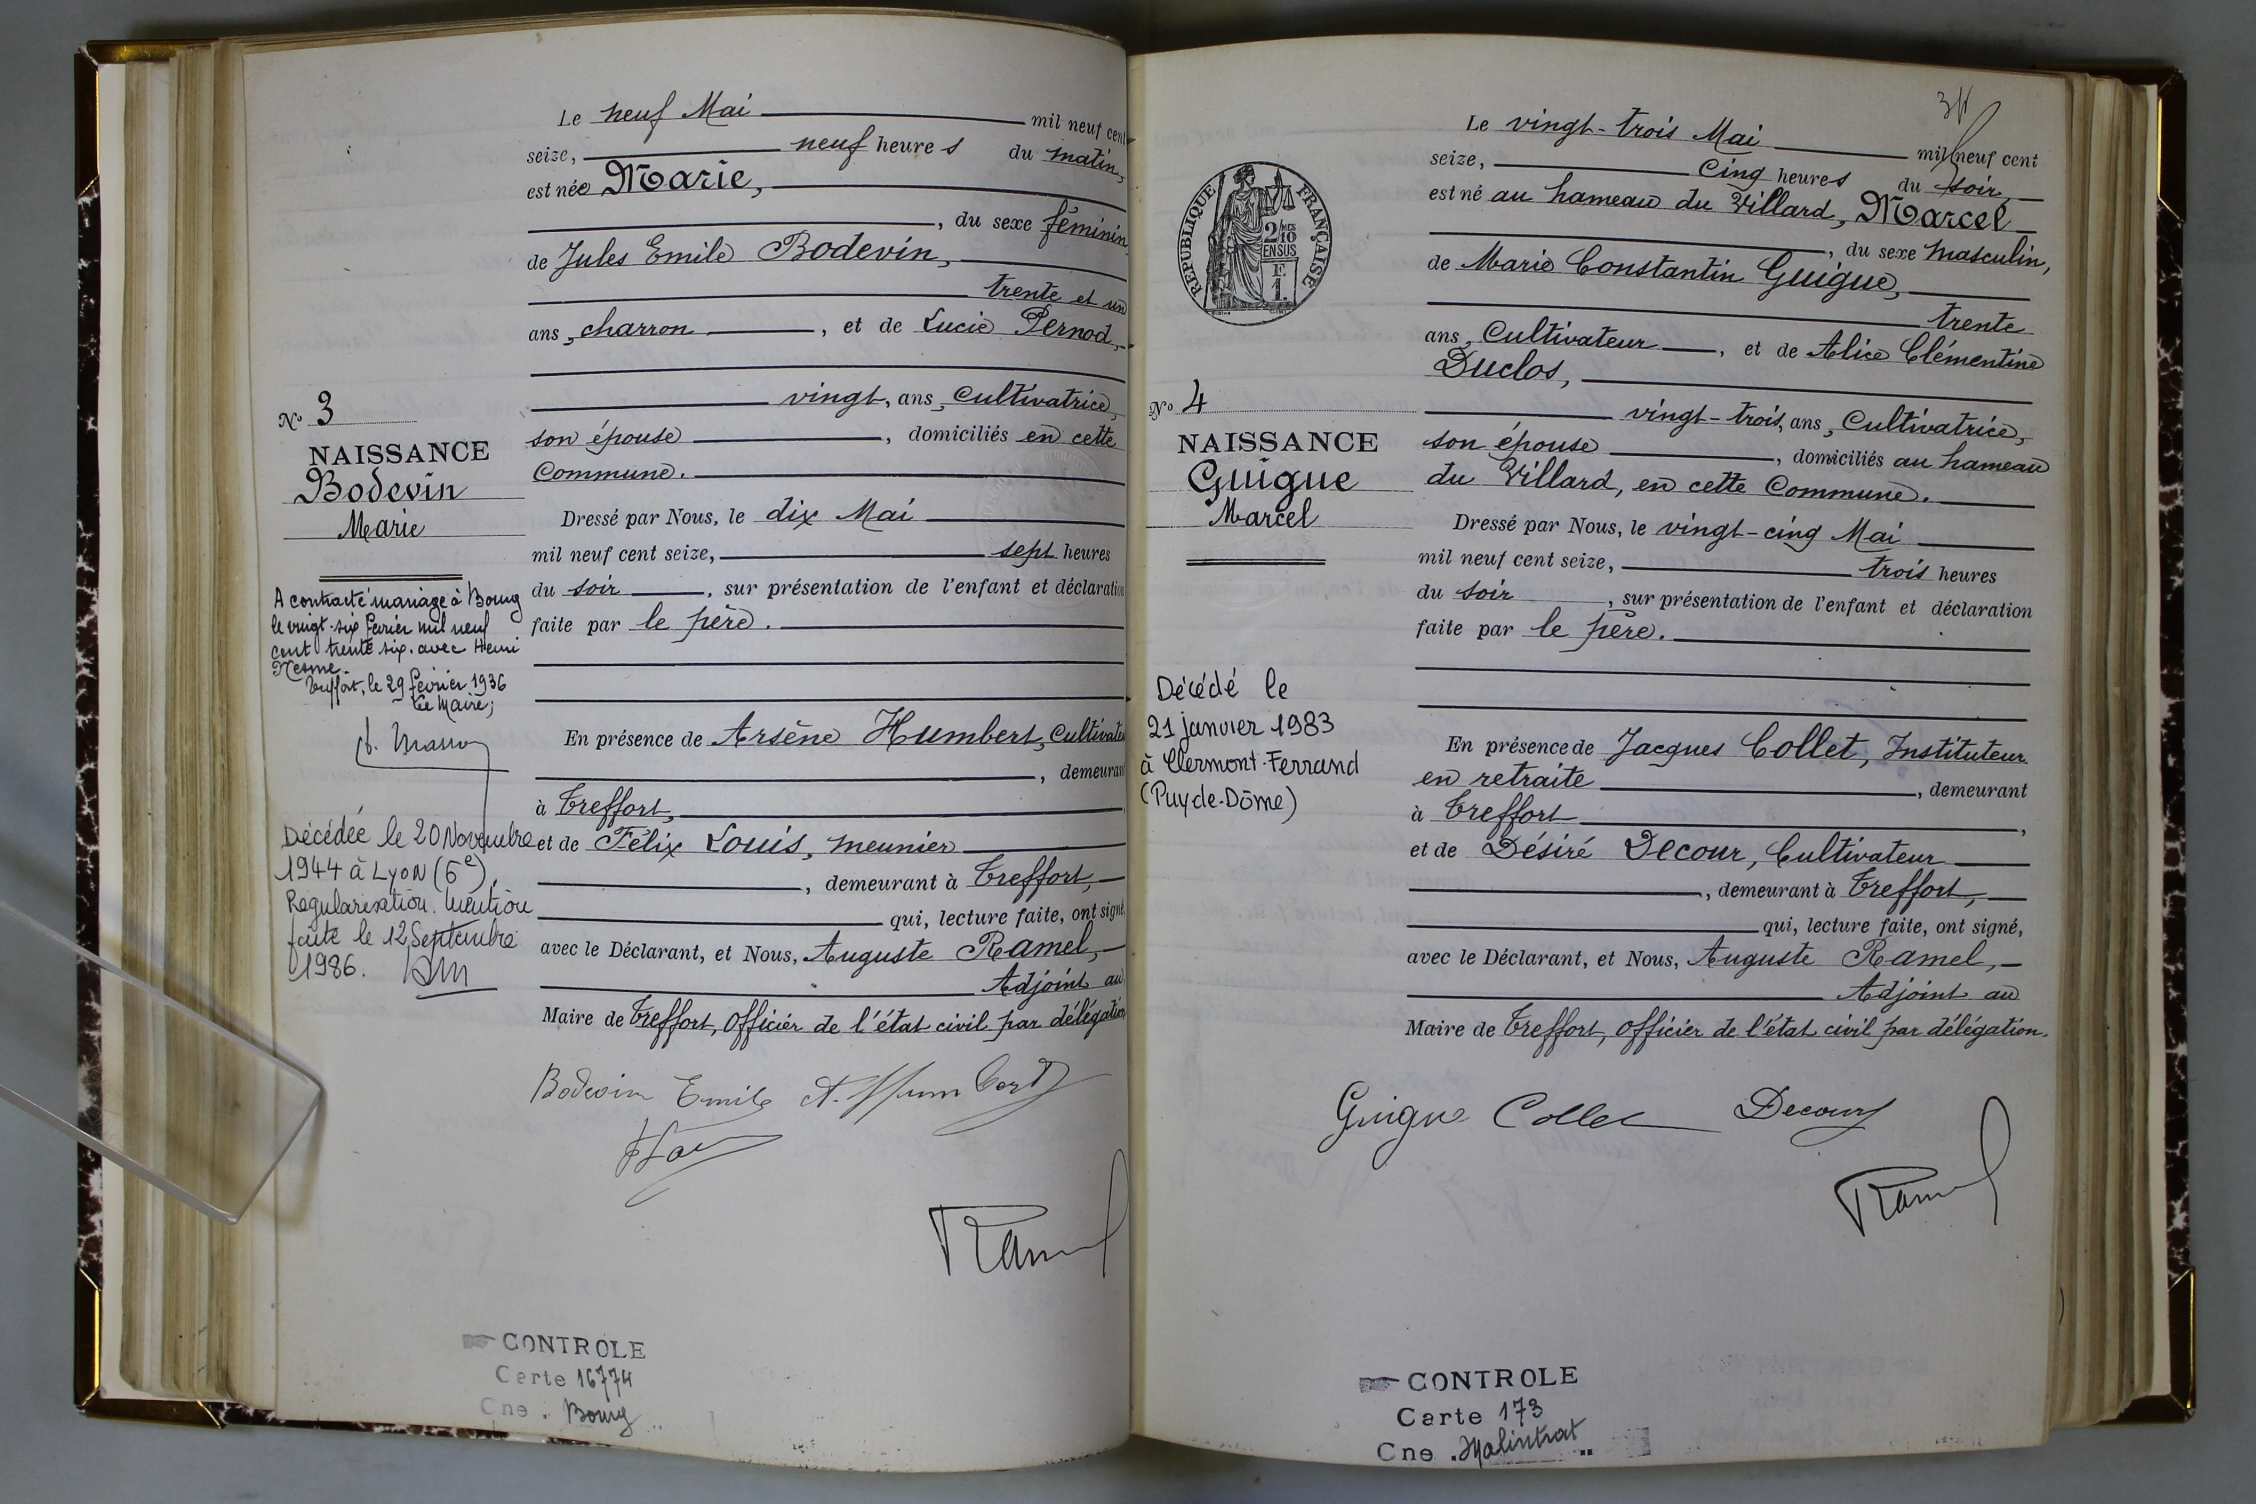 Le neuf Mai mil neuf cent
seize, neuf heures du matin,
est née Marie,
, du sexe féminin
de Jules Emile Bodevin,
trente et un
ans, charron , et de Lucie Pernod,
vingt, ans, Cultivatrice,
son épouse , domiciliés en cette
Commune.
Dressé par Nous, le dix Mai
mil neuf cent seize, sept heures
du soir , sur présentation de l'enfant et déclaration
faite par le père.
En présence de Arsène Humbert, Cultivate
, demeurant
à Treffort,
et de Félix Louis, meunier
, demeurant à Treffort,
qui, lecture faite, ont signé
avec le Déclarant, et Nous, Auguste Ramel,
Adjoint au
Maire de Treffort, Officier de l'état civil par délégation
No 3
NAISSANCE
Bodevin
Marie
A contracté mariage à Bourg
le vingt-six février mil neuf
cent trente six. avec Henri
Nesme.
Treffort, le 29 février 1936
Le Maire;
Décédée le 20 Novembre
1944 à Lyon (6e).
Régularisation. Mention
faite le 12 Septembre
1986.
Bodevin Emile A. Humbert
Ramel
CONTROLE
Carte 16774
Cne. Bourg
34
Le vingt-trois Mai mil neuf cent
seize, Cinq heures du soir,
est né au hameau du Villard, Marcel
, du sexe masculin,
de Marie Constantin Guigue,
trente
ans, Cultivateur , et de Alice Clémentine
Duclos,
vingt-trois, ans, Cultivatrice,
son épouse , domiciliés au hameau
du Villard, en cette Commune.
Dressé par Nous, le vingt-cinq Mai
mil neuf cent seize, trois heures
du soir , sur présentation de l'enfant et déclaration
faite par le père.
En présence de Jacques Collet, Instituteur
en retraite , demeurant
à Treffort ,
et de Désiré Decour, Cultivateur
, demeurant à Treffort,
qui, lecture faite, ont signé,
avec le Déclarant, et Nous, Auguste Ramel,
Adjoint au
Maire de Treffort, Officier de l'état civil par délégation.
RÉPUBLIQUE FRANÇAISE
2/10 MES
EN SUS
F.
1.
No 4
NAISSANCE
Guigue
Marcel
Décédé le
21 janvier 1983
à Clermont-Ferrand
(Puy de-Dôme)
Guigue Collet Decour
Ramel
CONTROLE
Carte 173
Cne. Malintrat